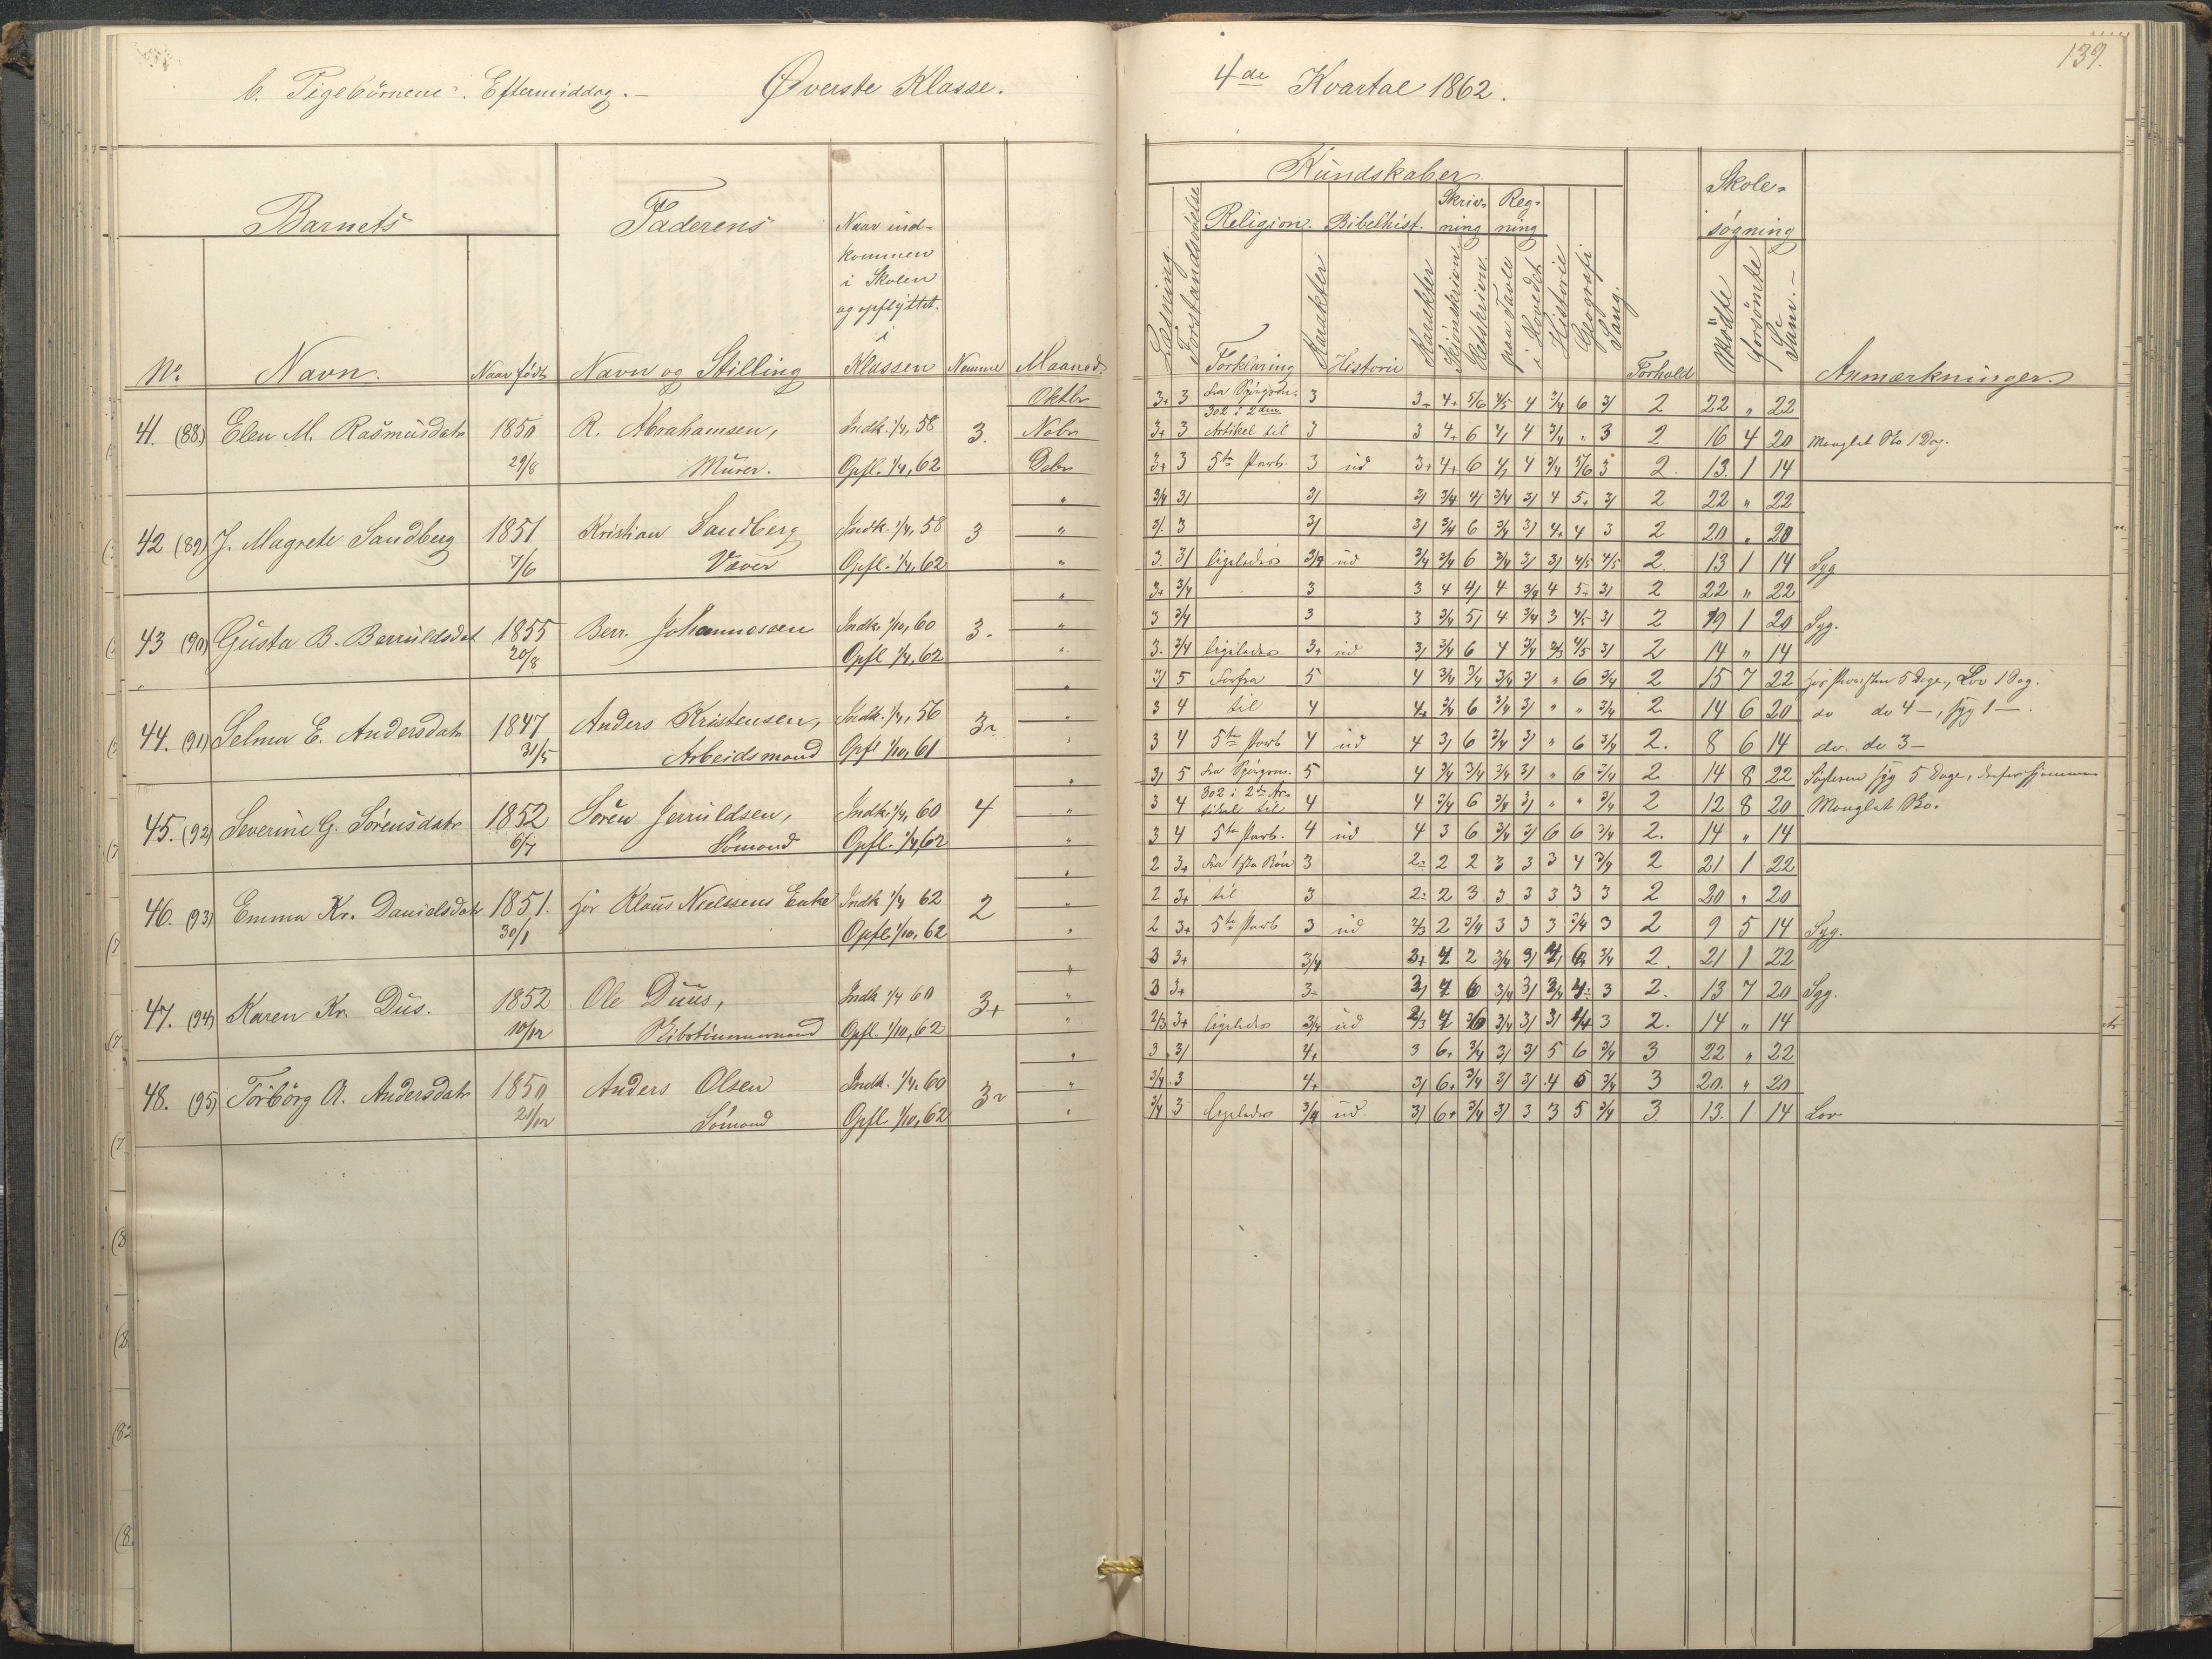 b. Pigebörnene. Eftermiddag. – Øverste Klasse.
4de Kvartal 1862.
139.
Barnets
Faderens
Naar ind-
kommen
i Skolen
og opflyttet
i
Klassen
No.
Navn.
Naar födt
Navn og Stilling
Nemme
Maaned.
Kundskaber
Læsning.
Forstandsövelse
Religion.
Forklaring
Karakter
Bibelhist.
Historie
Karakter
Skriv-
ning
Skjönskrivn
Retskrivn.
Reg-
ning
paa Tavle
i Hovedet
Historie
Geografi
Sang.
Forhold
Skole-
sögning
Mödte
Forsömte
Sum. –
Anmærkninger.
41. (88) Elen M. Rasmusdatr 1850 29/8 R. Abrahamsen, Murer. Indk. 1/4, 58 Opfl. 1/4, 62 3.
Oktbr 3+ 3 Fra Spörgsm. 3 3+ 4+ 5/6 4/5 4 3/4 6 3/ 2 22 „ 22
302 i 2den
Nobr 3+ 3 Artikel til 3 3 4+ 6 4/ 4 3/4 „ 3 2 16 4 20 Manglet Sko 1 Dag.
Debr 3+ 3 5te Parb. 3 ud 3+ 4+ 6 4/ 4 3/4 5/6 3 2. 13. 1 14
42 (89) J. Magrete Sandberg 1851 7/6 Kristian Sandberg Væver Indk. 1/4, 58 Opfl. 1/4, 62 3
„ 3/4 3/ 3/ 3/ 3/4 4/ 3/4 3/ 4 5+ 3/ 2 22 „ 22
„ 3/. 3 3/ 3/ 3/4 6 3/4 3/ 4+ 4 3 2 20 „ 20
„ 3. 3/ ligeledes 3/4 ud 3/4 3/4 6 3/4 3/ 3/ 4/5 4/5 2. 13 1 14 Syg
43 (90) Gusta B. Berruldsdat 1855 20/8 Berr. Johannessen Indk. 1/10, 60 Opfl 1/4, 62 3.
„ 3+ 3/4 3 3 4 4/ 4 3/4 4 5- 3/ 2 22 „ 22
„ 3 3/4 3 3 3/4 5/ 4 3/4 3 4/5 3/ 2 19 1 20 Syg.
„ 3. 3/4 ligeledes 3+ ud 3/ 3/4 6 4 3/4 2/3 4/5 3/ 2 14 „ 14
44. (91) Selma E. Andersdatr 1847 31/5 Anders Kristensen, Arbeidsmand Indk. 1/4, 56 Opfl 1/10, 61
„ 3/ 5 Forfra 5 4 3/4 3/4 3/4 3/ „ 6 3/4 2 15 7 22 5 Dage, Lov 1 Dag.
„ 3 4 til 4 4+ 3/4 6 3/4 3/ „ „ 3/4 2 14 6 20 do do 4 –, syg 1 –.
„ 3 4 5te Parb 4 ud 4 3/ 6 3/4 3/ „ 6 3/4 2. 8 6 14 do. do 3 –
45. (92) Severine G. Sörensdatr 1852 6/7 Sören Jerruldsen, Sömand Indk. 1/4, 60 Opfl. 1/4, 62 4
„ 3/ 5 Fra Spörgsm. 5 4 3/4 3/4 3/4 3/ „ 6 3/4 2 14 8 22 syg 5 Dage,
302 i 2den Ar-
„ 3 4 tikel til 4 4 3/4 6 3/4 3/ „ „ 3/4 2 12 8 20 Manglet Sko.
„ 3 4 5te Parb. 4 ud 4 3 6 3/4 3/ 6 6 3/4 2. 14 „ 14
46. (93) Emma Kr. Danielsdatr 1851. 30/1 hos Klaus Nielsens Enke Indk 1/4 62 Opfl. 1/10, 62 2
„ 2 3+ Fra 1ste Bön 3 2- 2 2 3 3 3 4 3/4 2 21 1 22
„ 2 3+ til 3 2- 2 3 3 3 3 3 3 2 20 „ 20
„ 2 3+ 5te Parb 3 ud 2/3 2 3/4 3 3 3 3/4 3 2 9 5 14 Syg.
47. (94) Karen Kr. Dus. 1852 10/12 Ole Duus, Skibstimmermand Indk 1/4 60 Opfl. 1/10, 62 3+
„ 3 3+ 3/4 2 3/4 3/4 2. 21 1 22
„ 3 3+ 3- 6 3/4 3/ 3/4 3 2. 13 7 20 Syg.
„ 2/3 3+ ligeledes 3/4 ud 2/3 3/4 3/ 3/ 3 2. 14 „ 14
48. (95) Torborg A. Andersdatr 1850 21/12 Anders Olsen Sömand Indk. 1/4, 60 Opfl. 1/10, 62
„ 3 3/ 4+ 3 6+ 3/4 3/ 3/ 5 6 3/4 3 22 „ 22
„ 3/4 3 4+ 3/ 6+ 3/4 3/ 3/ 4 5 3/4 3 20. „ 20
„ 3/4 3 ligeledes 3/4 ud. 3/ 6+ 3/4 3/ 3 3 5 3/4 3. 13. 1 14 Lov